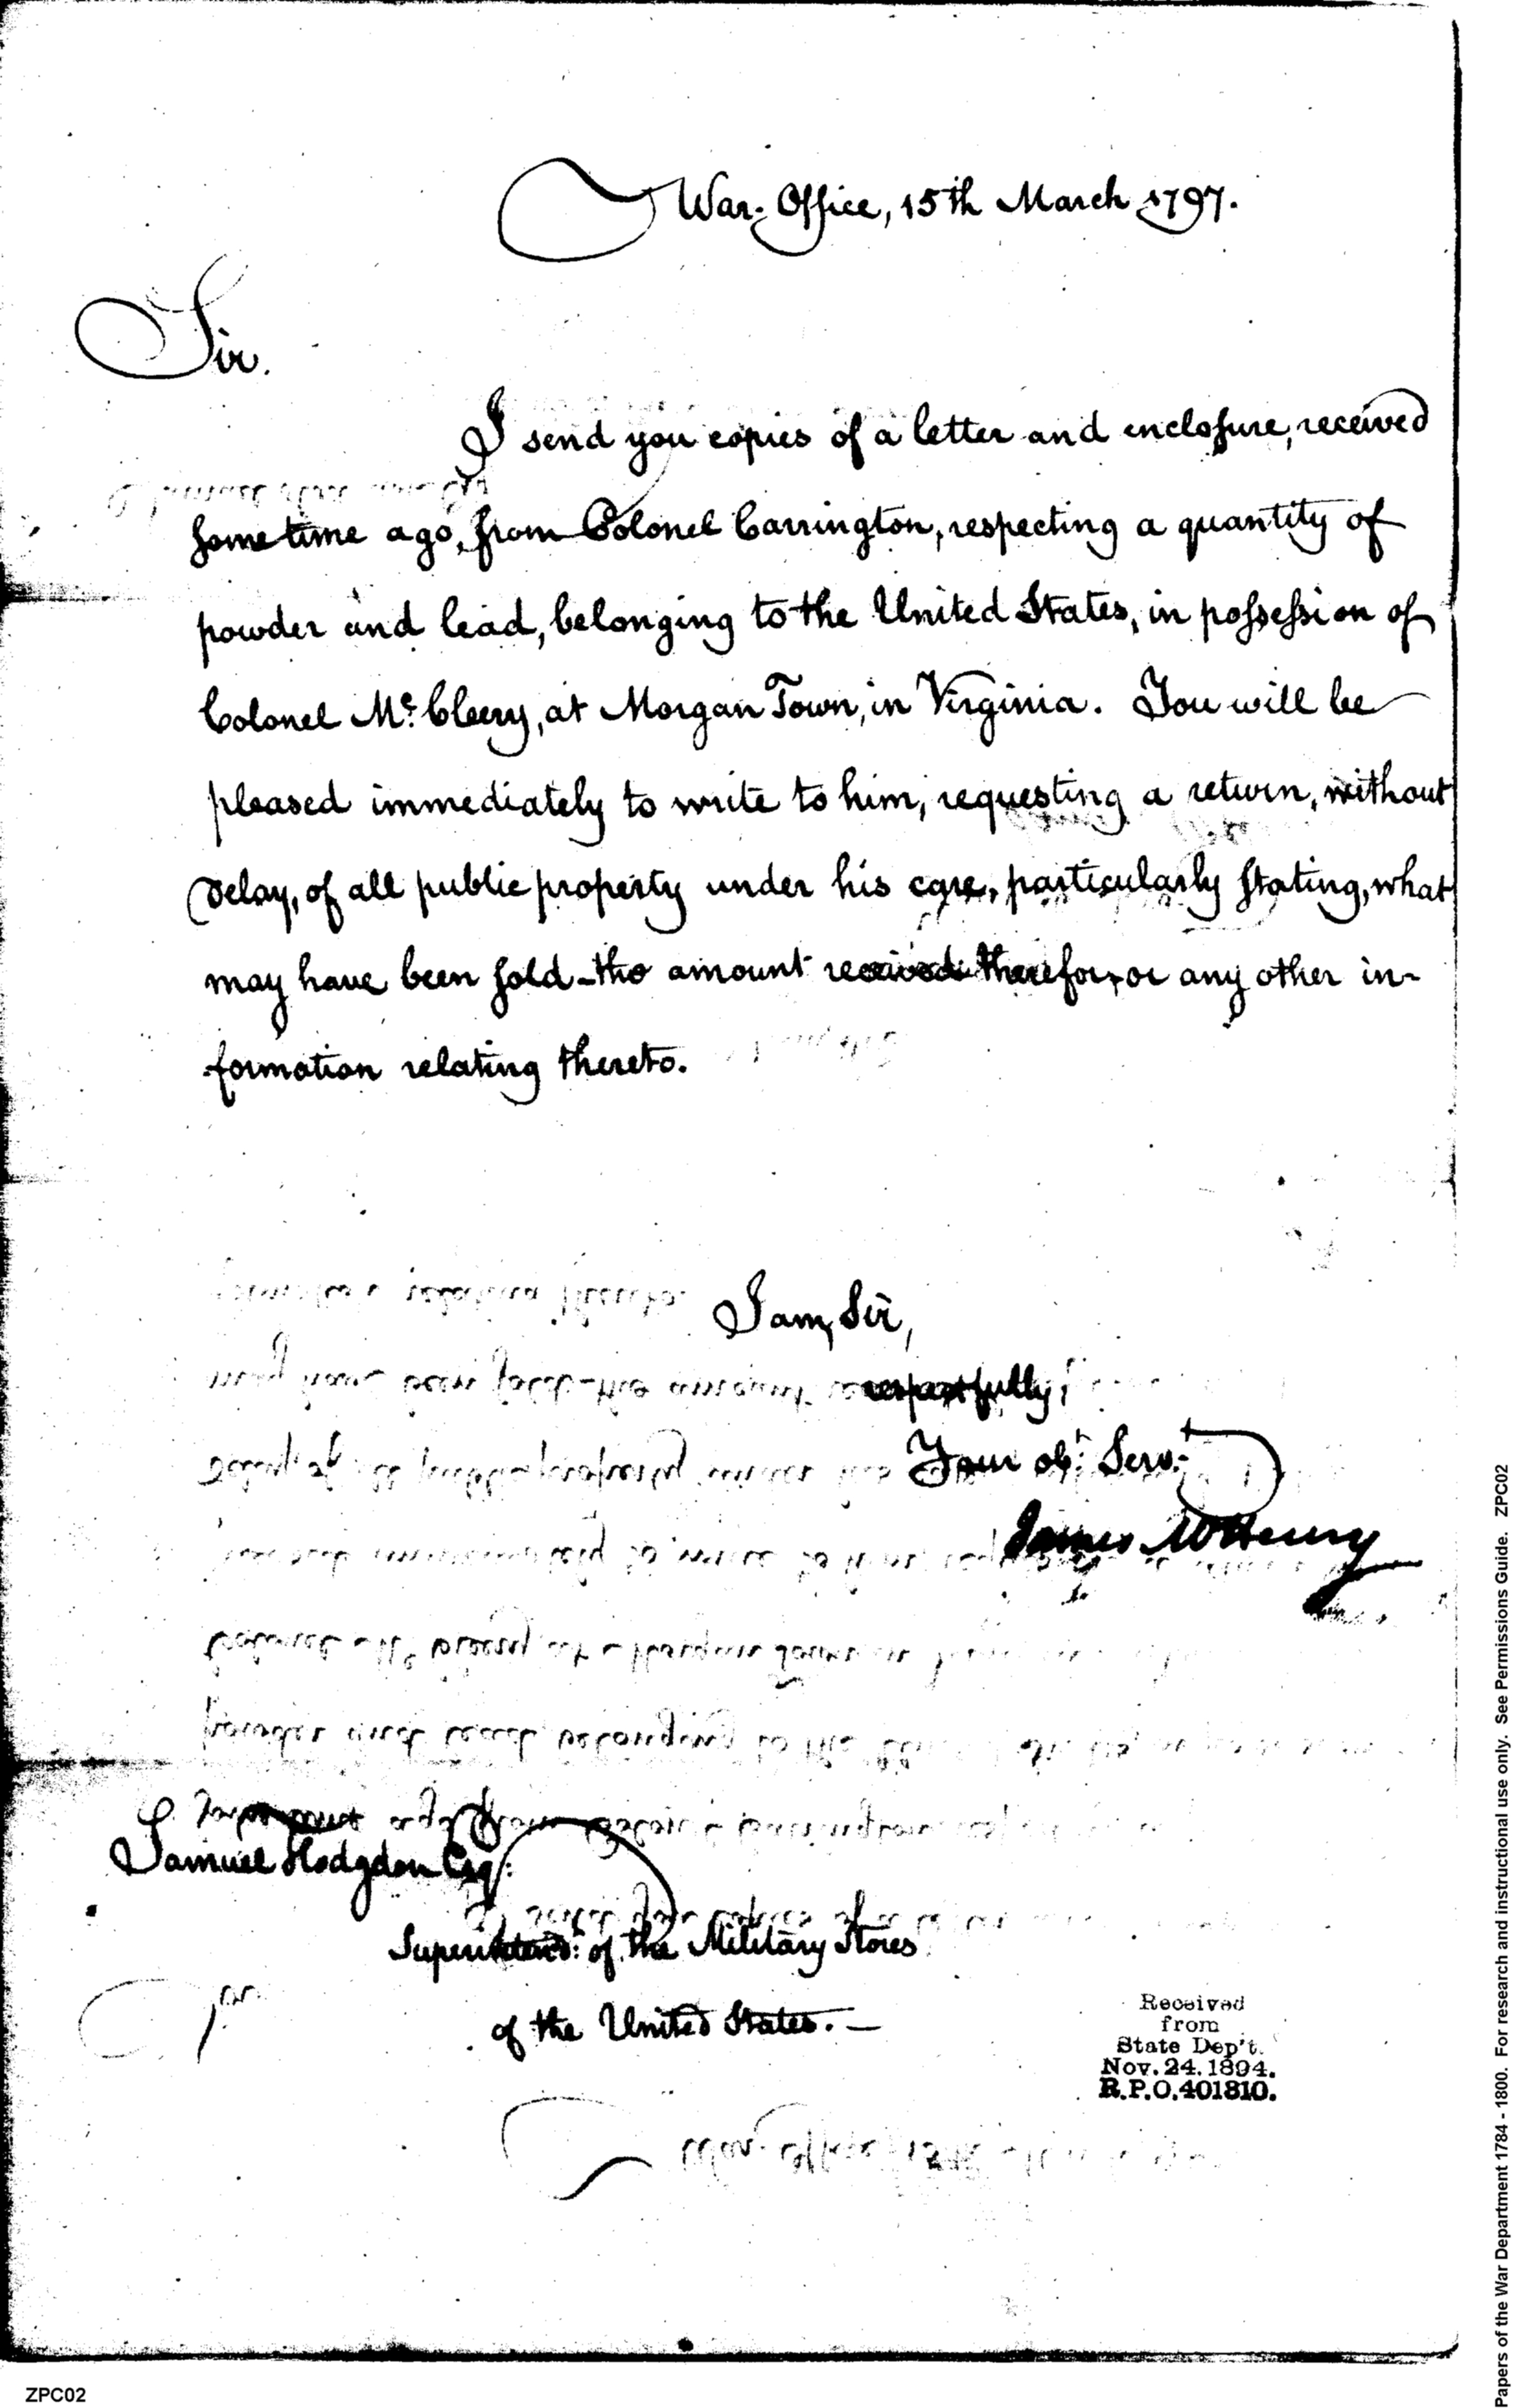 War Office, 15th March 1797.
Sir.
I send you copies of a letter and enclosure, received
some time ago, from Colonel Carrington, respecting a quantity of
powder and lead, belonging to the United States, in possession of
Colonel Mc. Cleery, at Morgan Town, in Virginia. You will be
pleased immediately to write to him, requesting a return, without
delay, of all public property under his care, particularly stating, what
may have been sold - the amount received therefor, or any other in-
formation relating thereto.
I am, Sir,
respectfully,
Your obt. Servt.
James McHenry
Samuel Hodgdon Esqr.
Superintend: of the Military Stores
of the United States. —
Received
from
State Dep't.
Nov. 24. 1894.
R.P.O. 401810.
ZPC02
Papers of the War Department 1784 - 1800. For research and instructional use only. See Permissions Guide. ZPC02